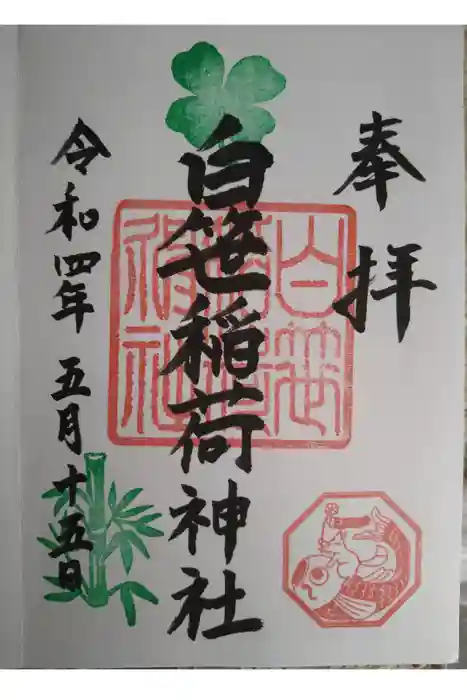 奉拝
白笹稲荷神社
白笹稲荷神社
令和四年五月十五日